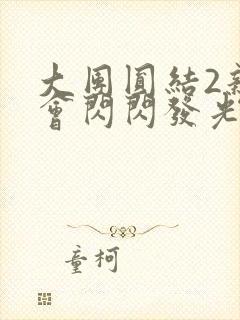 大團圓結2新
會閃閃發光
童柯